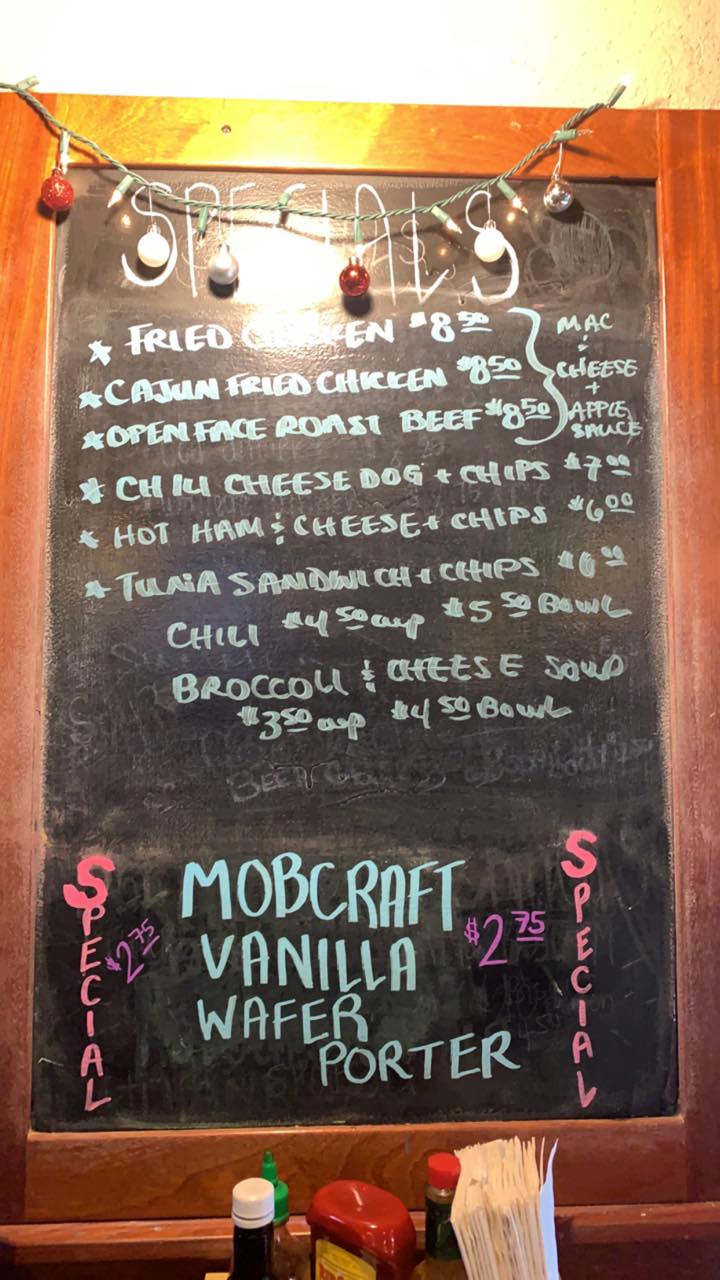 SPECIALS
* FRIED CHICKEN $8.50
* CAJUN FRIED CHICKEN $8.50
* OPEN FACE ROAST BEEF $8.50
MAC
&
CHEESE
+
APPLE
SAUCE
* CHILI CHEESE DOG + CHIPS $7.00
* HOT HAM & CHEESE + CHIPS $6.00
* TUNA SANDWICH + CHIPS $6.00
CHILI $4.50 CUP $5.50 BOWL
BROCCOLI & CHEESE SOUP
$3.50 CUP $4.50 BOWL
SPECIAL
$2.75
MOBCRAFT
VANILLA
WAFER
PORTER
$2.75
SPECIAL